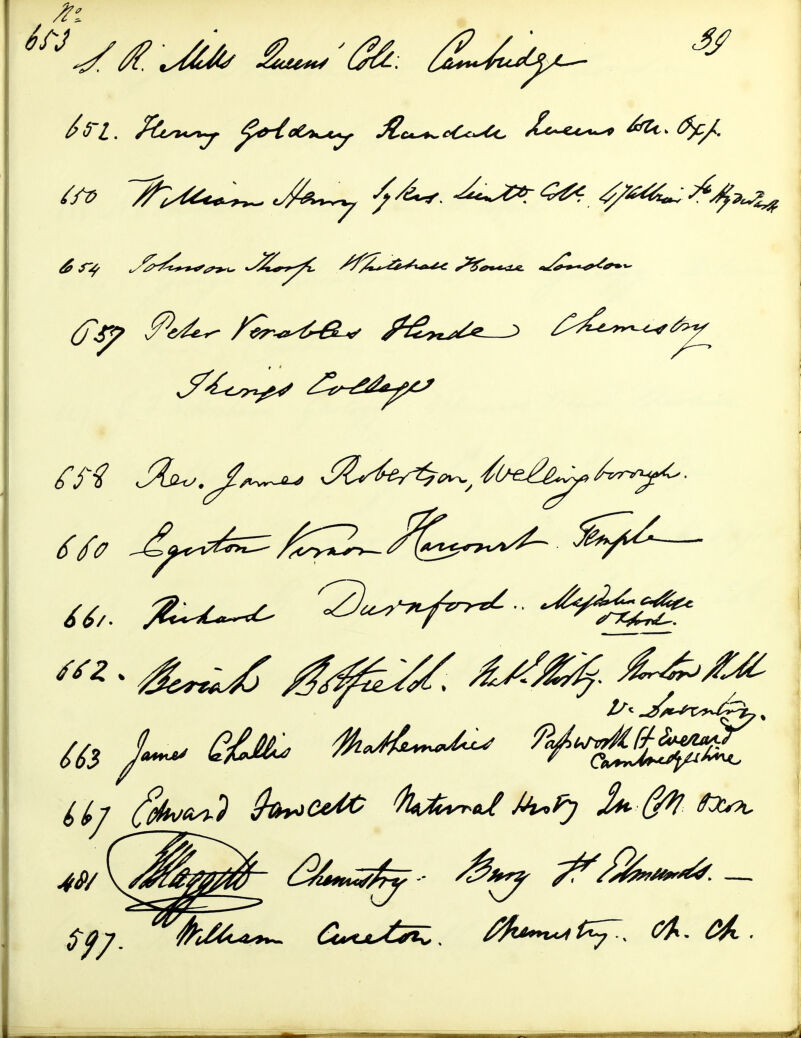 No.
653 S. R. Mills Queens' Coll: Cambridge 39
652. Henry Goldney Randall Queens Coll. Oxf.
650 William Henry Sykes. Lieutt. Coll. 47 Albion St. Hyde Park
654 Johnson Thorp Whitehall House London
657 Peter Venables Hinde Chemistry
Kings College
658 Rev. James Robertson, Wellingborough.
660 Egerton Vernon Harcourt Temple
661. Richard Durnford.. Magdalen college
Oxford.
662. Beriah Botfield. Natl. Histy. Norton Hall
Daventry.
663 James Challis Mathematics Papworth St Everard
Cambridgeshire
667 Edward Fawcett Natural Histy Qu. Coll Oxon
481 Chemistry. Bury St. Edmunds. —
597. William Cureton. Chemistry.. Ch. Ch.